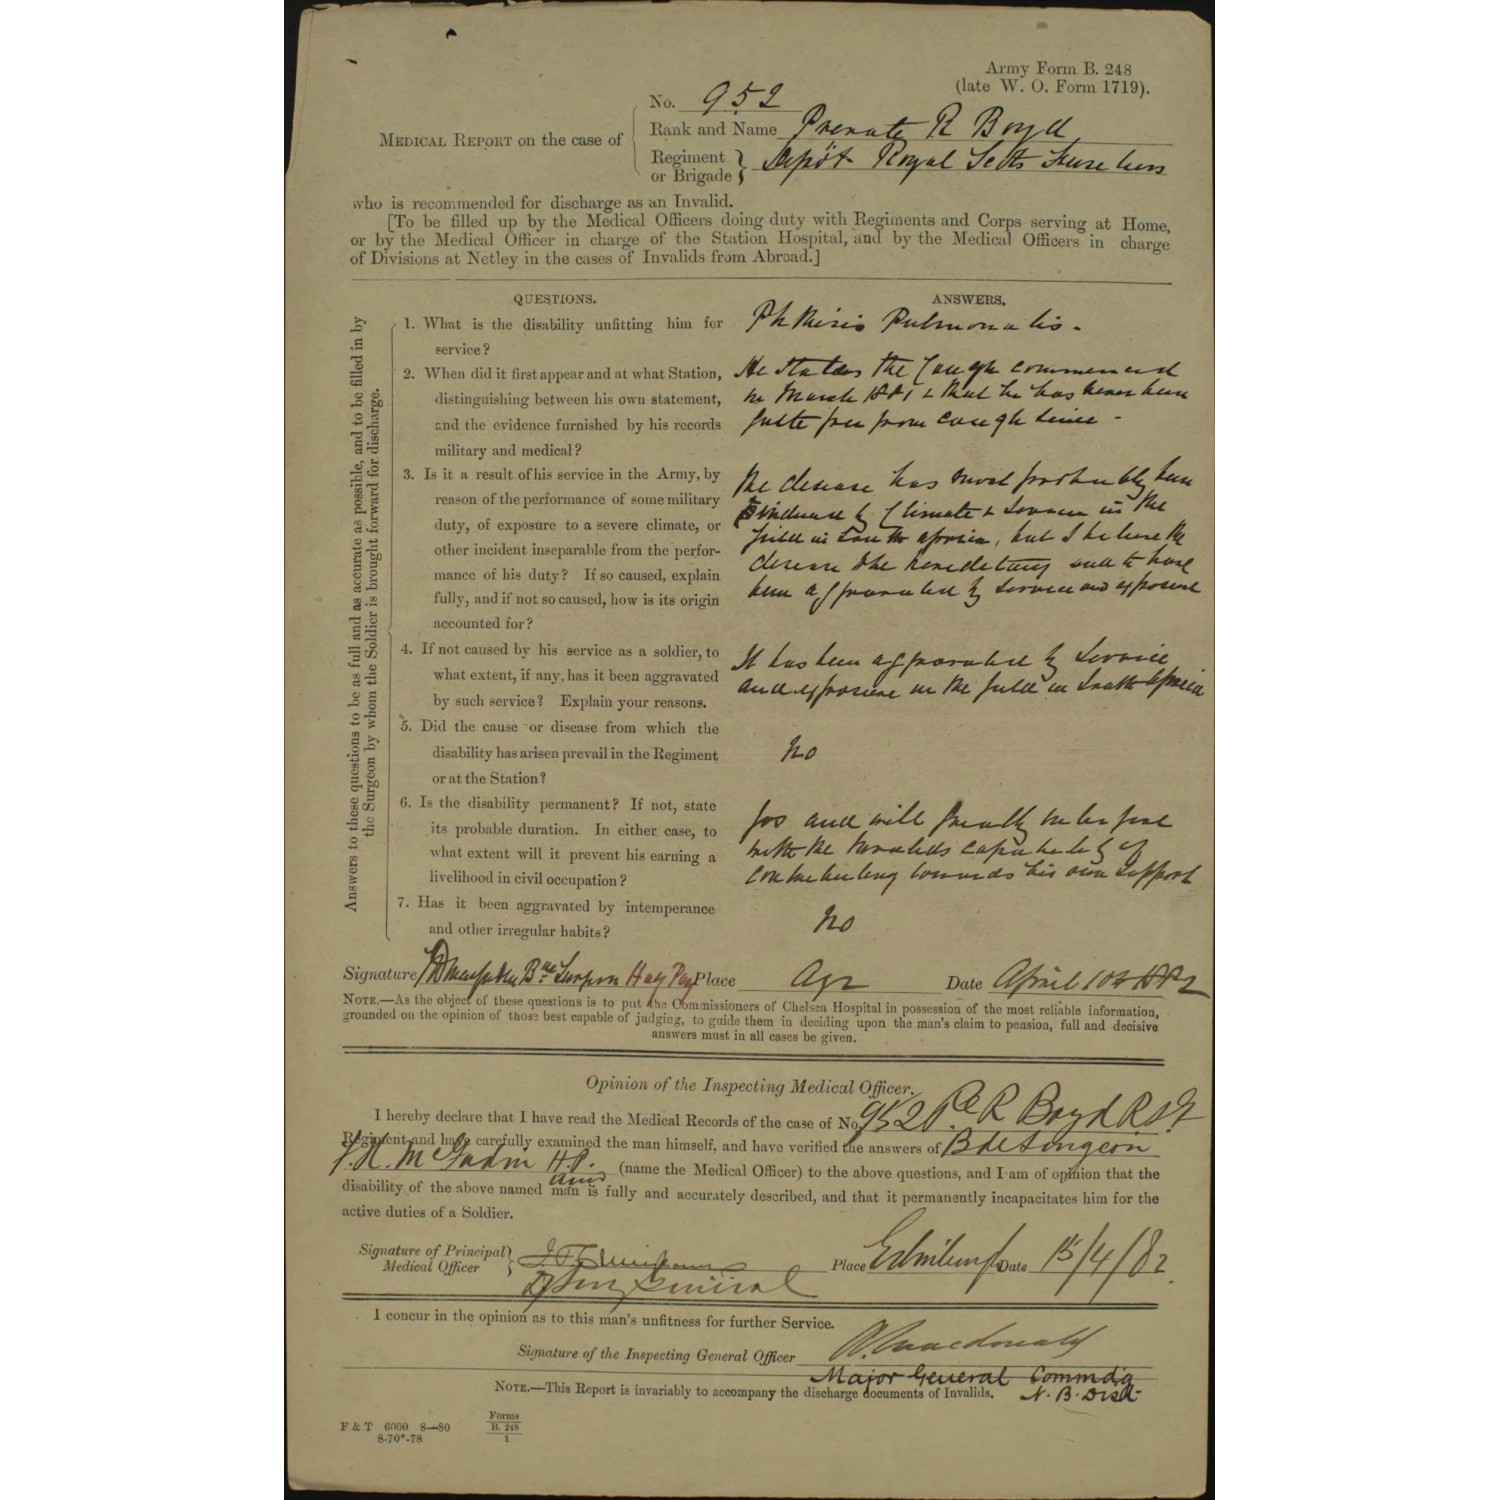 Army Form B. 248
(late W. O. Form 1719).
No. 952
MEDICAL REPORT on the case of
Rank and Name Private R Boyd
Regiment or Brigade } Depôt Royal Scots Fusiliers
who is recommended for discharge as an Invalid.
[To be filled up by the Medical Officers doing duty with Regiments and Corps serving at Home,
or by the Medical Officer in charge of the Station Hospital, and by the Medical Officers in charge
of Divisions at Netley in the cases of Invalids from Abroad.]
QUESTIONS.
ANSWERS.
Answers to these questions to be as full and as accurate as possible, and to be filled in by
the Surgeon by whom the Soldier is brought forward for discharge.
1. What is the disability unfitting him for
service?
Phthisis Pulmonalis -
2. When did it first appear and at what Station,
distinguishing between his own statement,
and the evidence furnished by his records
military and medical?
He states the Cough commenced
in March 1881 & that he has never been
quite free from cough since -
3. Is it a result of his service in the Army, by
reason of the performance of some military
duty, of exposure to a severe climate, or
other incident inseparable from the perfor-
mance of his duty? If so caused, explain
fully, and if not so caused, how is its origin
accounted for?
The disease has most probably been
induced by Climate & Service in the
field in South Africa, but I believe the
disease to be hereditary and to have
been aggravated by Service and exposure
4. If not caused by his service as a soldier, to
what extent, if any, has it been aggravated
by such service? Explain your reasons.
It has been aggravated by Service
and exposure in the field in South Africa
5. Did the cause or disease from which the
disability has arisen prevail in the Regiment
or at the Station?
No
6. Is the disability permanent? If not, state
its probable duration. In either case, to
what extent will it prevent his earning a
livelihood in civil occupation?
Yes and will greatly interfere
with the invalids capability of
contributing towards his own support
7. Has it been aggravated by intemperance
and other irregular habits?
No
Signature Bde Surgeon Half Pay Place Ayr Date April 10th 1882
NOTE.—As the object of these questions is to put the Commissioners of Chelsea Hospital in possession of the most reliable information,
grounded on the opinion of those best capable of judging, to guide them in deciding upon the man's claim to pension, full and decisive
answers must in all cases be given.
Opinion of the Inspecting Medical Officer.
I hereby declare that I have read the Medical Records of the case of No. 952 Pte R Boyd R S F
Regiment and have carefully examined the man himself, and have verified the answers of Bde Surgeon
H.P. (name the Medical Officer) to the above questions, and I am of opinion that the
disability of the above named man is fully and accurately described, and that it permanently incapacitates him for the
active duties of a Soldier.
Signature of Principal Medical Officer } Place Edinburgh Date 15/4/82
Dy Surg General
I concur in the opinion as to this man's unfitness for further Service.
Signature of the Inspecting General Officer Macdonald
Major General Commdg
N. B. Dist
NOTE.—This Report is invariably to accompany the discharge documents of Invalids.
F & T 6000 8—80
8-70*-78
Forms
B. 248
1